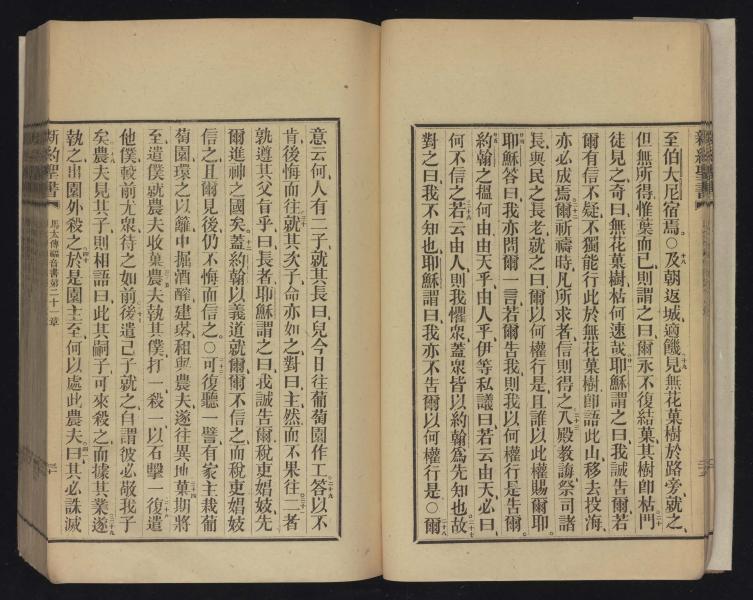 至伯大尼宿焉。○及朝返城適饑見無花菓樹於路旁就之、
但無所得惟葉而已則謂之曰爾永不復結菓其樹卽枯門
徒見之奇曰無花菓樹枯何速哉耶穌謂之曰我誠告爾若
爾有信不疑不獨能行此於無花菓樹卽語此山移去投海
亦必成焉爾祈禱時凡所求者信則得之入殿教誨祭司諸
長與民之長老就之曰爾以何權行是且誰以此權賜爾耶
耶穌答曰我亦問爾一言若爾告我則我以何權行是告爾
約翰之搵何由由天乎由人乎伊等私議曰若云由天必曰
何不信之若云由人則我懼眾蓋眾皆以約翰爲先知也故
對之曰我不知也耶穌謂曰我亦不告爾以何權行是○爾
意云何人有二子就其長曰兒今日往葡萄園作工答以不
肯後悔而往就其次子命亦如之對曰主然而不果往二者
孰遵其父旨乎曰長者耶穌謂之曰我誠告爾稅吏娼妓先
爾進神之國矣蓋約翰以義道就爾爾不信之而稅吏娼妓
信之且爾見後仍不悔而信之。○可復聽一譬有家主栽葡
萄園環之以籬中掘酒醡建塔租與農夫遂往異地菓期將
至遣僕就農夫收菓農夫執其僕扑一殺一以石擊一復遣
他僕較前尤眾待之如前後遣己子就之自謂彼必敬我子
矣農夫見其子則相語曰此其嗣子可來殺之而據其業遂
執之出園外殺之於是園主至何以處此農夫曰其必誅滅
新約聖書 馬太傳福音書第二十一章